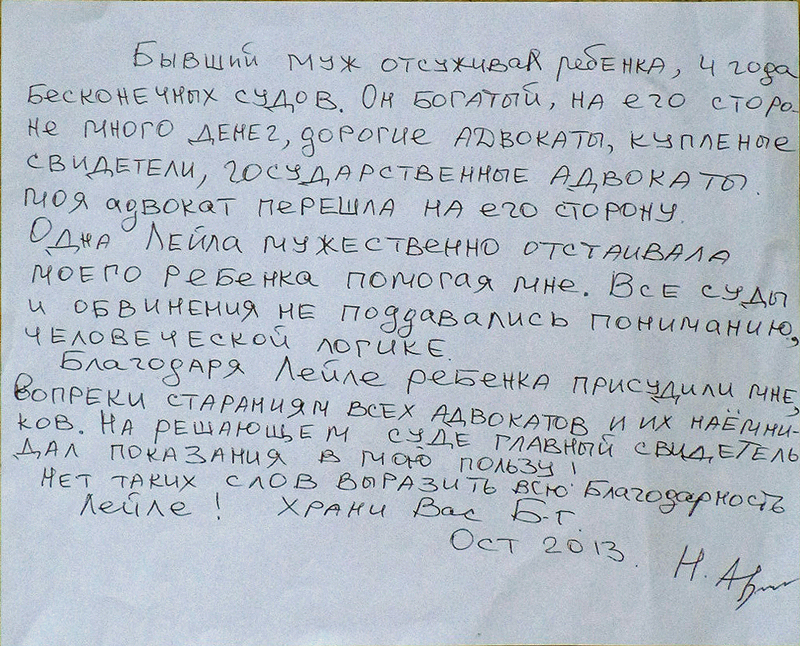 Бывший муж отсуживал ребенка, 4 года
бесконечных судов. Он богатый, на его сторо-
не много денег, дорогие адвокаты, купленые
свидетели, государственные адвокаты.
моя адвокат перешла на его сторону.
Одна Лейла мужественно отстаивала
моего ребенка помогая мне. Все суды
и обвинения не поддавались пониманию,
человеческой логике.
Благодаря Лейле ребенка присудили мне,
вопреки стараниям всех адвокатов и их наёмни-
ков. На решающем суде главный свидетель
дал показания в мою пользу!
Нет таких слов выразить всю благодарность
Лейле! Храни Вас Б-г.
Ост 2013.
Н.